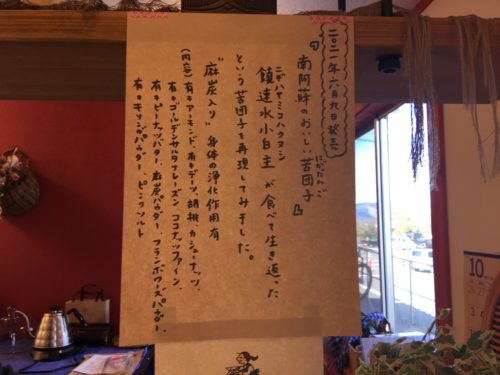 二〇二一年六月九日発売
『南阿蘇のおいしい苦団子』
にがだんご
ニギハヤミコハクヌシ
饒速水小白主が食べて生き返った
という苦団子を再現してみました。
"麻炭入り"身体の浄化作用有
(内容)有キアーモンド、有キデーツ、胡桃、カシューナッツ、
有キゴールデンサルタナレーズン、ココナッツファイン、
有キピーナッツバター、麻炭パウダー、フランボワーズパウダー、
有キモリンガパウダー、ピンクソルト
10